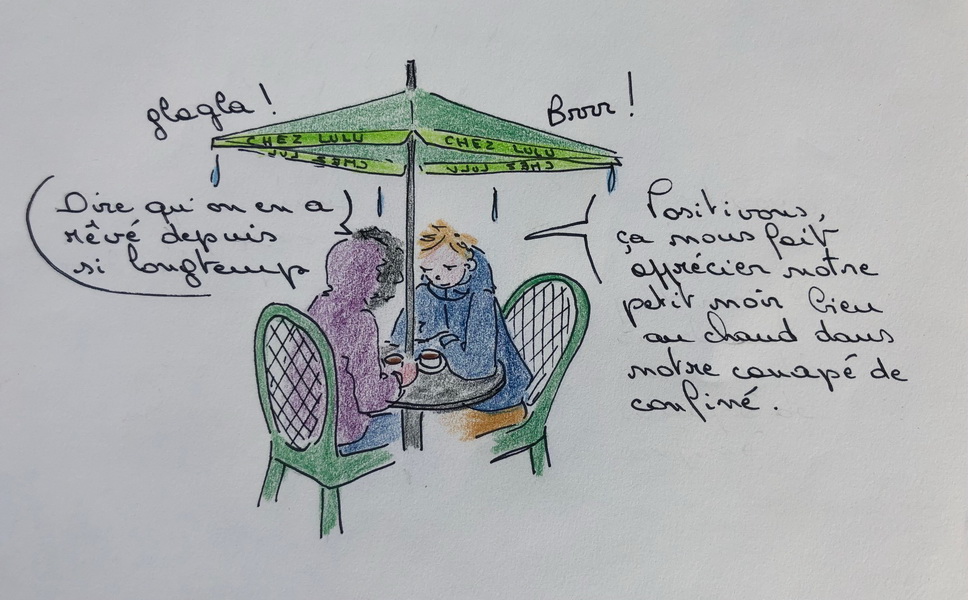 glagla !
Brrr !
CHEZ LULU
CHEZ LULU
CHEZ LULU
CHEZ LULU
Dire qu'on en a
rêvé depuis
si longtemp
Positivons,
ça nous fait
apprécier notre
petit noir bien
au chaud dans
notre canapé de
confiné.